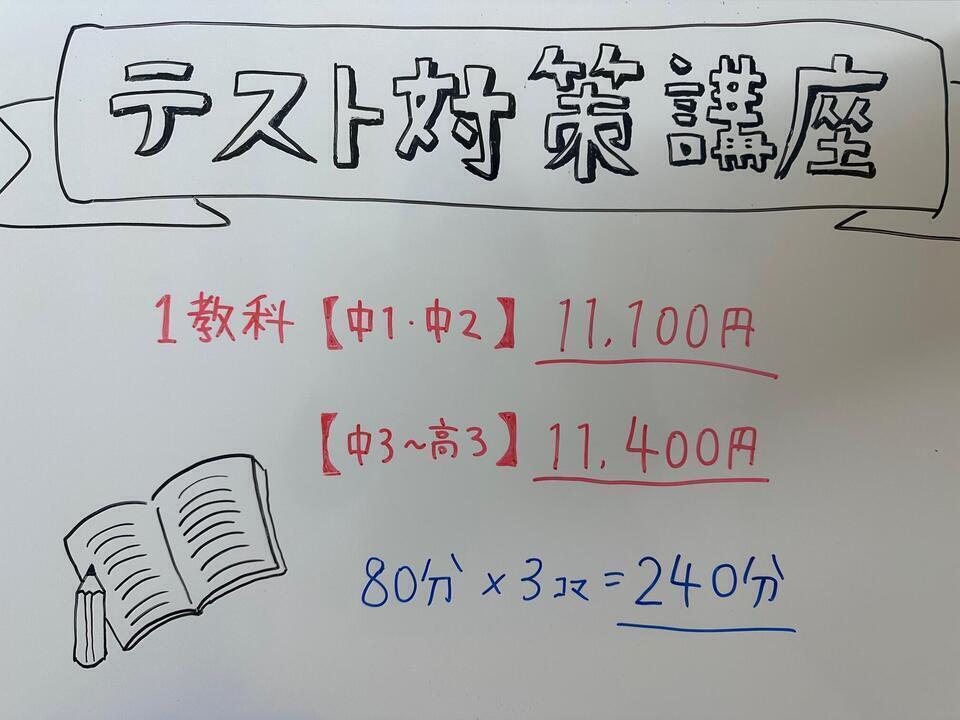 テスト対策講座
1教科【中1・中2】11,100円
【中3～高3】11,400円
80分×3コマ=240分